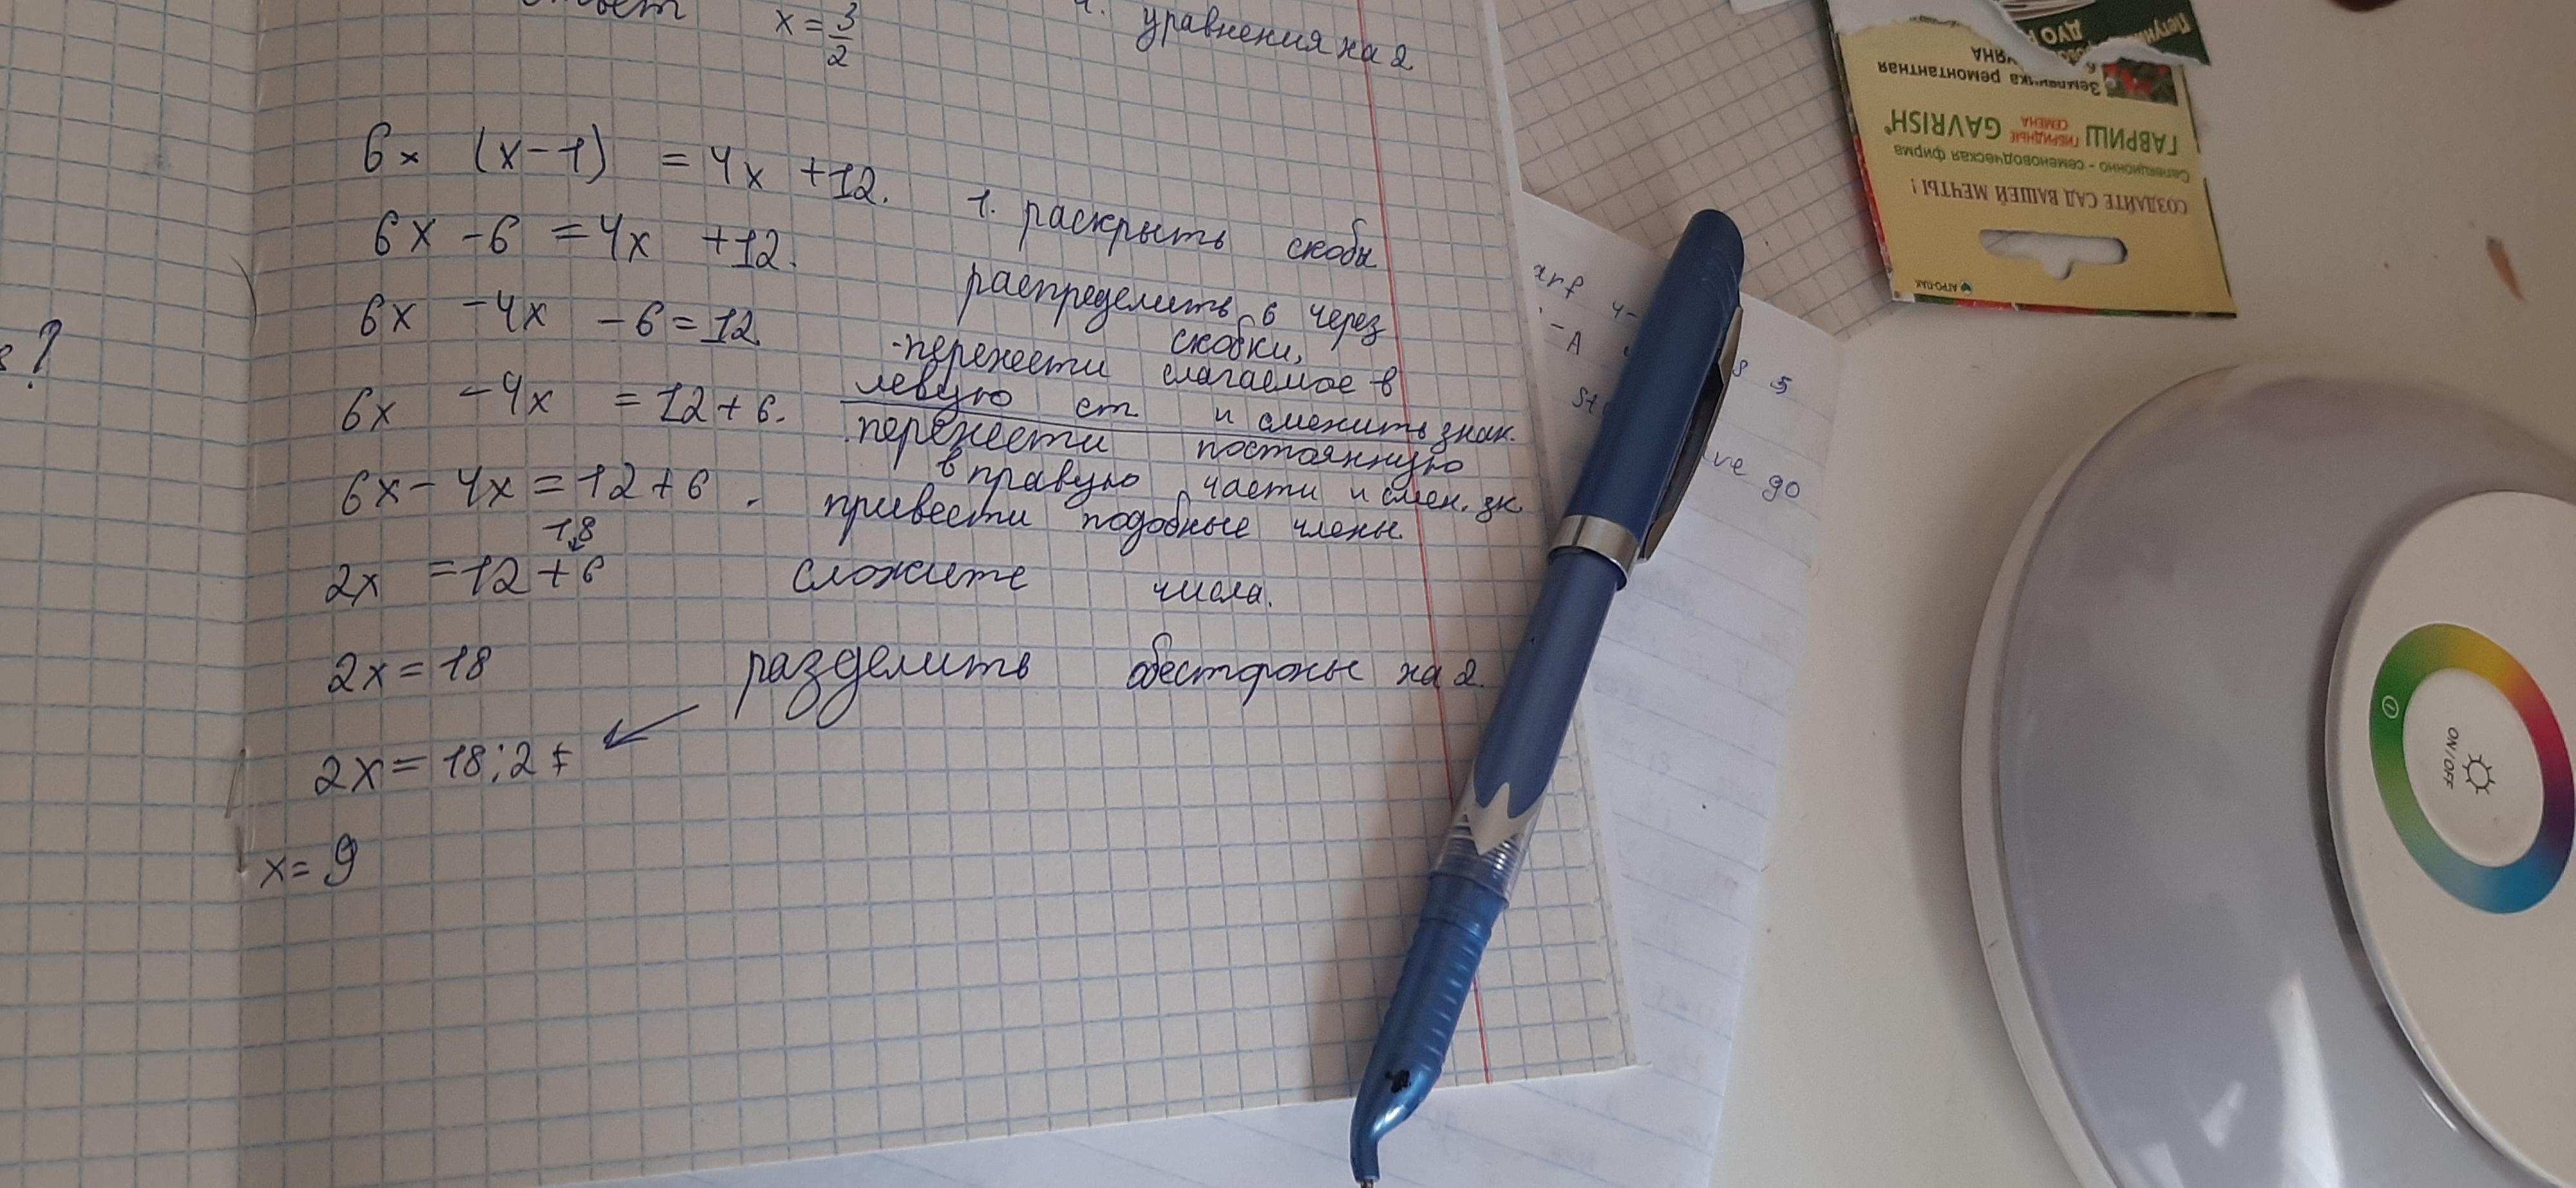 x = 3/2
уравнения на 2
6× (x-1) = 4x +12.
1. раскрыть скобы
6x -6 =4x +12.
распределить 6 через
скобки,
6x -4x -6=12
-перенести слагаемое в
левую ст и сменить знак.
6x -4x =12+6.
перенести постоянную
в правую части и смен. зк.
6x-4x=12+6.
привести подобные члены
18
2x =12+6
сложите числа.
2x=18
разделить обестороны на 2.
2x=18:2
x=9
?
arf 4-
-A
8 5
st
ve go
Петуния
ДУО
Земляника ремонтантная
ГАВРИШ ГИБРИДНЫЕ СЕМЕНА GAVRISH®
Селекционно - семеноводческая фирма
СОЗДАЙТЕ САД ВАШЕЙ МЕЧТЫ!
АГРО-ПАК
ON/OFF